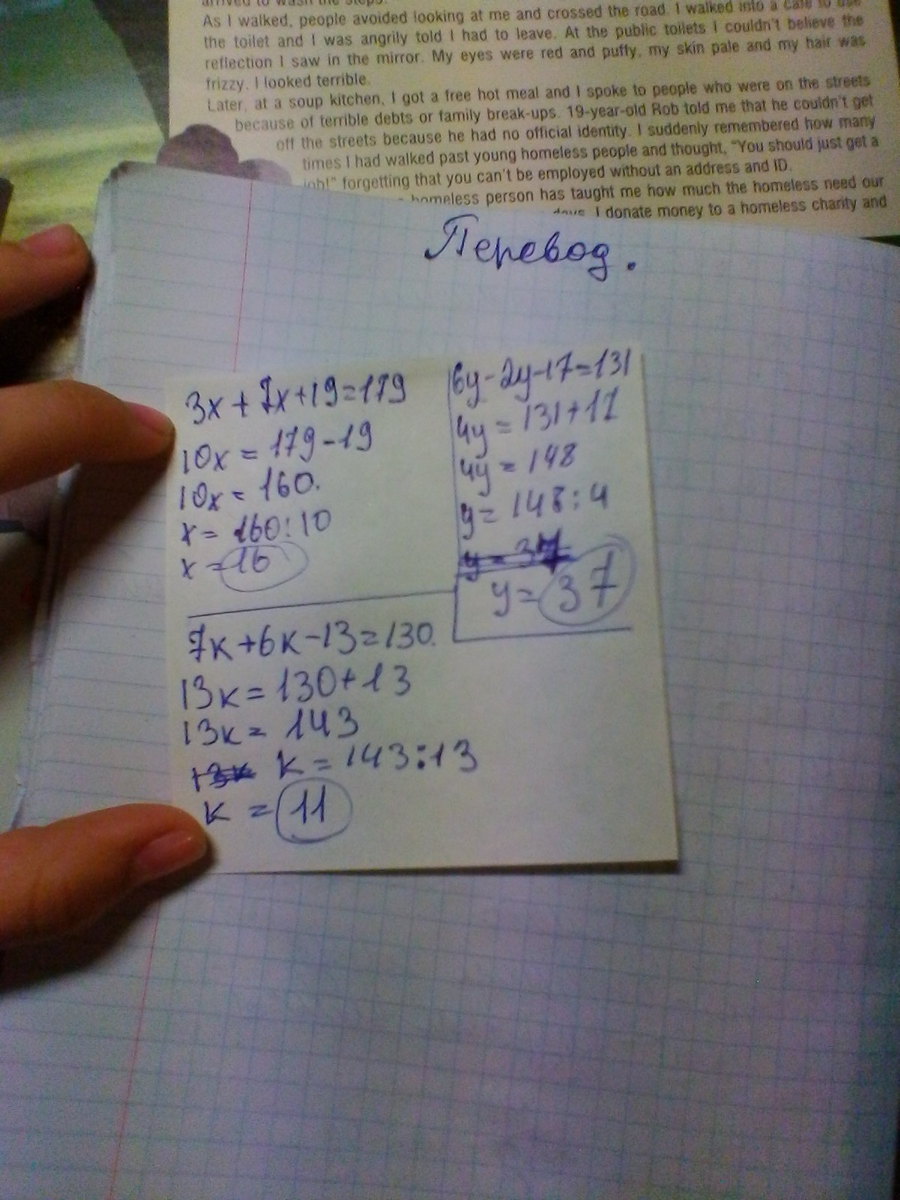 As I walked, people avoided looking at me and crossed the road. I walked into a cafe to use
the toilet and I was angrily told I had to leave. At the public toilets I couldn't believe the
reflection I saw in the mirror. My eyes were red and puffy, my skin pale and my hair was
frizzy. I looked terrible.
Later, at a soup kitchen, I got a free hot meal and I spoke to people who were on the streets
because of terrible debts or family break-ups. 19-year-old Rob told me that he couldn't get
off the streets because he had no official identity. I suddenly remembered how many
times I had walked past young homeless people and thought, "You should just get a
job!" forgetting that you can't be employed without an address and ID.
homeless person has taught me how much the homeless need our
days. I donate money to a homeless charity and
Перевод.
3x + 7x+19=179
10x = 179-19
10x = 160.
x = 160:10
x = 16
6y-2y-17=131
4y = 131+17
4y = 148
y = 148:4
y = 37
7к+6к-13=130.
13к=130+13
13к= 143
к = 143:13
к = 11